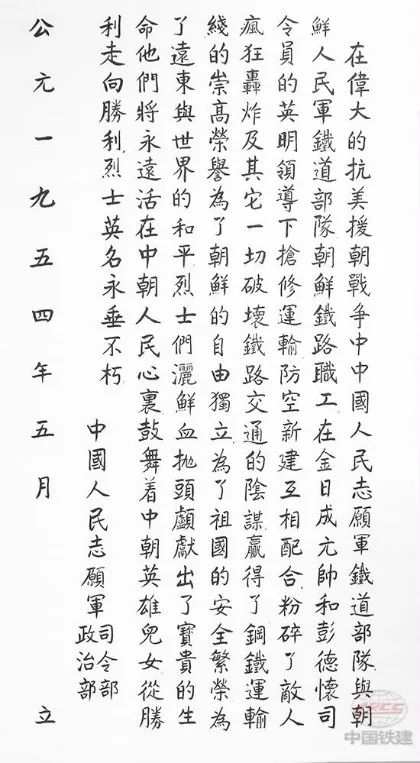 在偉大的抗美援朝戰争中中國人民志願軍鐵道部隊與朝
鮮人民軍鐵道部隊朝鮮鐵路職工在金日成元帥和彭德懷司
令員的英明領導下搶修運輸防空新建互相配合粉碎了敵人
瘋狂轟炸及其它一切破壞鐵路交通的陰謀贏得了鋼鐵運輸
綫的崇高榮譽為了朝鮮的自由獨立為了祖國的安全繁榮為
了遠東與世界的和平烈士們灑鮮血抛頭顱獻出了寶貴的生
命他們將永遠活在中朝人民心裏鼓舞着中朝英雄兒女從勝
利走向勝利烈士英名永垂不朽
中國人民志願軍
司令部
政治部
公元一九五四年五月立
CRCC
中国铁建